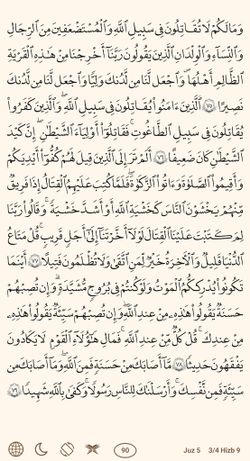 وَمَا لَكُمْ لَا تُقَٰتِلُونَ فِى سَبِيلِ ٱللَّهِ وَٱلْمُسْتَضْعَفِينَ مِنَ ٱلرِّجَالِ
وَٱلنِّسَآءِ وَٱلْوِلْدَٰنِ ٱلَّذِينَ يَقُولُونَ رَبَّنَآ أَخْرِجْنَا مِنْ هَٰذِهِ ٱلْقَرْيَةِ
ٱلظَّالِمِ أَهْلُهَا وَٱجْعَل لَّنَا مِن لَّدُنكَ وَلِيًّا وَٱجْعَل لَّنَا مِن لَّدُنكَ
نَصِيرًا ﴿٧٥﴾ ٱلَّذِينَ ءَامَنُوا۟ يُقَٰتِلُونَ فِى سَبِيلِ ٱللَّهِ ۖ وَٱلَّذِينَ كَفَرُوا۟
يُقَٰتِلُونَ فِى سَبِيلِ ٱلطَّٰغُوتِ فَقَٰتِلُوٓا۟ أَوْلِيَآءَ ٱلشَّيْطَٰنِ ۖ إِنَّ كَيْدَ
ٱلشَّيْطَٰنِ كَانَ ضَعِيفًا ﴿٧٦﴾ أَلَمْ تَرَ إِلَى ٱلَّذِينَ قِيلَ لَهُمْ كُفُّوٓا۟ أَيْدِيَكُمْ
وَأَقِيمُوا۟ ٱلصَّلَوٰةَ وَءَاتُوا۟ ٱلزَّكَوٰةَ فَلَمَّا كُتِبَ عَلَيْهِمُ ٱلْقِتَالُ إِذَا فَرِيقٌ
مِّنْهُمْ يَخْشَوْنَ ٱلنَّاسَ كَخَشْيَةِ ٱللَّهِ أَوْ أَشَدَّ خَشْيَةً ۚ وَقَالُوا۟ رَبَّنَا
لِمَ كَتَبْتَ عَلَيْنَا ٱلْقِتَالَ لَوْلَآ أَخَّرْتَنَآ إِلَىٰٓ أَجَلٍ قَرِيبٍ ۗ قُلْ مَتَٰعُ
ٱلدُّنْيَا قَلِيلٌ وَٱلْءَاخِرَةُ خَيْرٌ لِّمَنِ ٱتَّقَىٰ وَلَا تُظْلَمُونَ فَتِيلًا ﴿٧٧﴾ أَيْنَمَا
تَكُونُوا۟ يُدْرِككُّمُ ٱلْمَوْتُ وَلَوْ كُنتُمْ فِى بُرُوجٍ مُّشَيَّدَةٍ ۗ وَإِن تُصِبْهُمْ
حَسَنَةٌ يَقُولُوا۟ هَٰذِهِۦ مِنْ عِندِ ٱللَّهِ ۖ وَإِن تُصِبْهُمْ سَيِّئَةٌ يَقُولُوا۟ هَٰذِهِۦ
مِنْ عِندِكَ ۚ قُلْ كُلٌّ مِّنْ عِندِ ٱللَّهِ ۖ فَمَالِ هَٰٓؤُلَآءِ ٱلْقَوْمِ لَا يَكَادُونَ
يَفْقَهُونَ حَدِيثًا ﴿٧٨﴾ مَّآ أَصَابَكَ مِنْ حَسَنَةٍ فَمِنَ ٱللَّهِ ۖ وَمَآ أَصَابَكَ مِن
سَيِّئَةٍ فَمِن نَّفْسِكَ ۚ وَأَرْسَلْنَٰكَ لِلنَّاسِ رَسُولًا ۚ وَكَفَىٰ بِٱللَّهِ شَهِيدًا ﴿٧٩﴾
90 Juz 5 3/4 Hizb 9